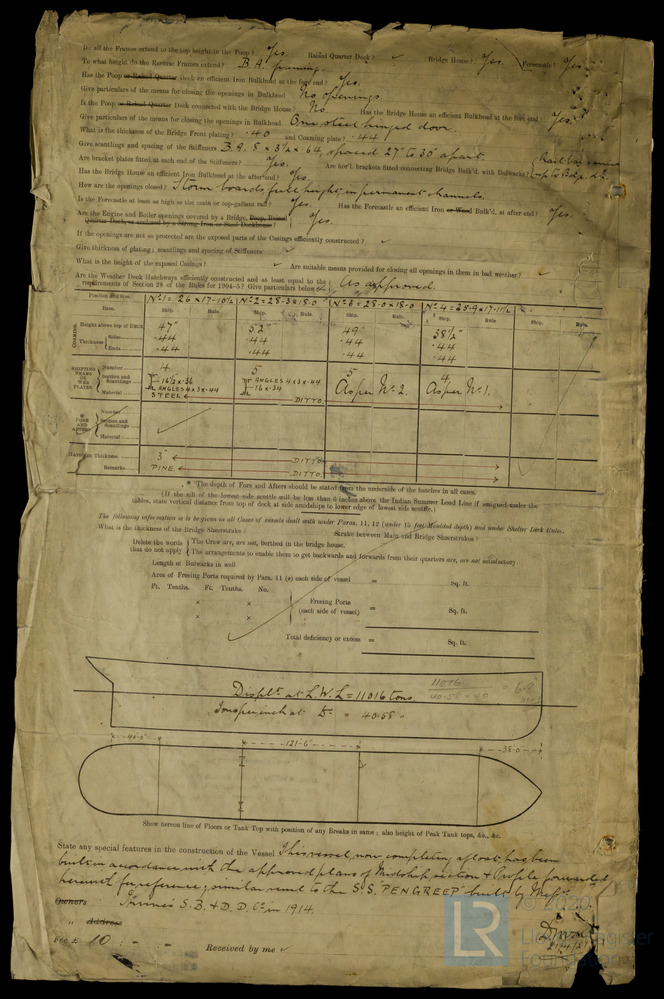 Do all the Frames extend to the top height in the Poop? Yes. Raised Quarter Deck? ✓ Bridge House? Yes. Forecastle? Yes
To what height do the Reverse Frames extend? B.A. framing.
Has the Poop or Raised Quarter deck an efficient Iron Bulkhead at the fore end? Yes.
Give particulars of the means for closing the openings in Bulkhead No openings.
Is the Poop or Raised Quarter Deck connected with the Bridge House? No Has the Bridge House an efficient Bulkhead at the fore end? Yes.
Give particulars of the means for closing the openings in Bulkhead One steel hinged door.
What is the thickness of the Bridge Front plating? .40 and Coaming plate? .44
Give scantlings and spacing of the Stiffeners B.A. 8 x 3½ x .64, spaced 27" to 30" apart.
Are bracket plates fitted at each end of the Stiffeners? Yes. Are hor'l. brackets fitted connecting Bridge Bulk'd. with Bulwarks?
Has the Bridge House an efficient Iron Bulkhead at the after end? Yes.
How are the openings closed? Storm boards full height, in permanent channels.
Is the Forecastle at least as high as the main or top-gallant rail? Yes. Has the Forecastle an efficient Iron or Wood Bulk'd. at after end? Yes.
Are the Engine and Boiler openings covered by a Bridge, Poop, Raised
Quarter Deck, or enclosed by a Strong Iron or Steel Deckhouse? Yes.
If the openings are not so protected are the exposed parts of the Casings efficiently constructed? ✓
Give thickness of plating; scantlings and spacing of Stiffeners ✓
What is the height of the exposed Casings? ✓ Are suitable means provided for closing all openings in them in bad weather? ✓
Are the Weather Deck Hatchways efficiently constructed and at least equal to the
requirements of Section 28 of the Rules for 1904-5? Give particulars below As approved.
Position and Size. No. 1 = 26 x 17-10½ No. 2 = 28-3 x 18-0 No. 3 = 28-0 x 18-0 No. 4 = 28-9 x 17-11½
Item. Ship. Rule Ship. Rule Ship. Rule Ship. Rule Ship. Rule
COAMING Height above top of Deck 47" 52" 49" 38½"
Thickness Sides .44 .44 .44 .44
Ends .44 .44 .44 .44
SHIFTING BEAMS OR WEB PLATES Number 4 5 5 4
Section and Scantlings 16½ x .36 ANGLES 4 x 3 x .44 ANGLES 4 x 3 x .44 16 x .34 As per No. 2. As per No. 1.
Material STEEL DITTO
FORE AND AFTERS Number
Section and Scantlings ✓
Material
Hatches Thickness 3" DITTO
Remarks PINE. DITTO
* The depth of Fore and Afters should be stated from the underside of the hatches in all cases.
(If the sill of the lowest side scuttle will be less than 6 inches above the Indian Summer Load Line if assigned under the
tables, state vertical distance from top of deck at side amidships to lower edge of lowest side scuttle.)
The following information is to be given in all Cases of vessels dealt with under Paras. 11, 12 (under 15 feet Moulded depth) and under Shelter Deck Rules.
What is the thickness of the Bridge Sheerstrake? Strake between Main and Bridge Sheerstrakes?
Delete the words that do not apply The Crew are, are not, berthed in the bridge house.
The arrangements to enable them to get backwards and forwards from their quarters are, are not satisfactory.
Length of Bulwarks in well
Area of Freeing Ports required by Para. 11 (e) each side of vessel = Sq. ft.
Ft. Tenths. Ft. Tenths. No.
× × Freeing Ports
× × (each side of vessel) = Sq. ft.
Total deficiency or excess = Sq. ft.
Displt. at L.W.L = 11016 tons.
11016
40.58 x 40
Tons per inch at Do. = 40.58
40-0 121-6 38-0
Show hereon line of Floors or Tank Top with position of any Breaks in same; also height of Peak Tank tops, &c., &c.
State any special features in the construction of the Vessel This vessel, now completing afloat, has been
built in accordance with the approved plans of Midship section & Profile forwarded
herewith for reference; similar vessel to the S.S. "PENGREEP" built by Messrs
Owners Irvine's S.B. & D.D. Co. in 1914.
" Address
Fee £ 10 : - : - Received by me ✓
© 2020
LR Lloyd's Register
Foundation